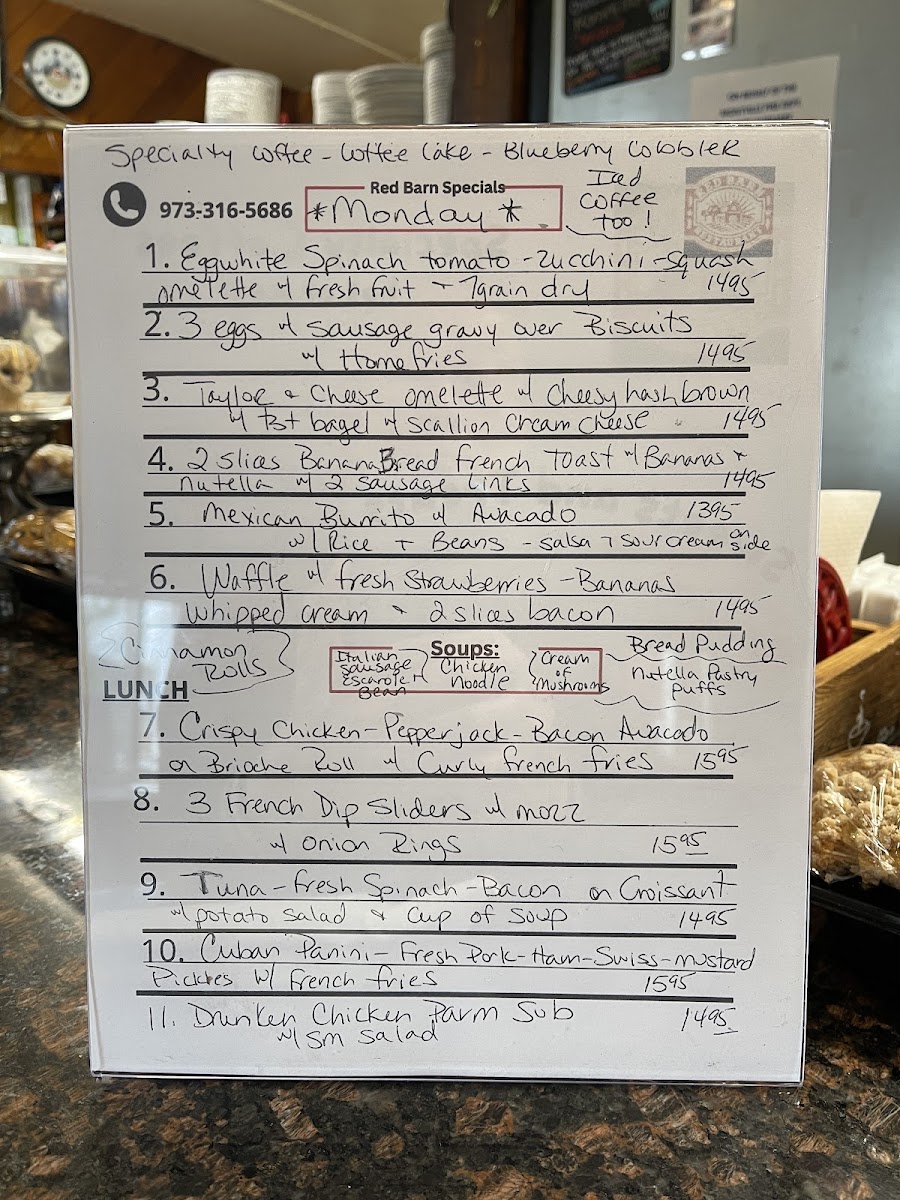 Specialty Coffee - Coffee Cake - Blueberry Cobbler
Red Barn Specials
973-316-5686
*Monday*
Iced
Coffee
too!
RED BARN
RESTAURANT
1. Eggwhite Spinach tomato - Zucchini - Squash
omelette w/ fresh fruit + 7grain dry 1495
2. 3 eggs w/ Sausage gravy over Biscuits
w/ Homefries 1495
3. Taylor & Cheese omelette w/ Cheesy hashbrown
w/ tst bagel w/ scallion Cream Cheese 1495
4. 2 slices BananaBread French Toast w/ Bananas +
nutella w/ 2 sausage links 1495
5. Mexican Burrito w/ Avacado 1395
w/ Rice + Beans - salsa + sour cream on side
6. Waffle w/ fresh Strawberries - Bananas
whipped cream & 2 slices bacon 1495
Cinnamon
Rolls
Soups:
Italian
Sausage
Escarole +
Bean
Chicken
Noodle
Cream
of
Mushrooms
Bread Pudding
Nutella Pastry
Puffs
LUNCH
7. Crispy Chicken - Pepperjack - Bacon Avacado
on Brioche Roll w/ Curly french fries 1595
8. 3 French Dip Sliders w/ mozz
w/ onion Rings 1595
9. Tuna - fresh Spinach - Bacon on Croissant
w/ potato salad & Cup of Soup 1495
10. Cuban Panini - Fresh Pork - Ham - Swiss - mustard
Pickles w/ French fries 1595
11. Drunken Chicken Parm Sub 1495
w/ sm salad